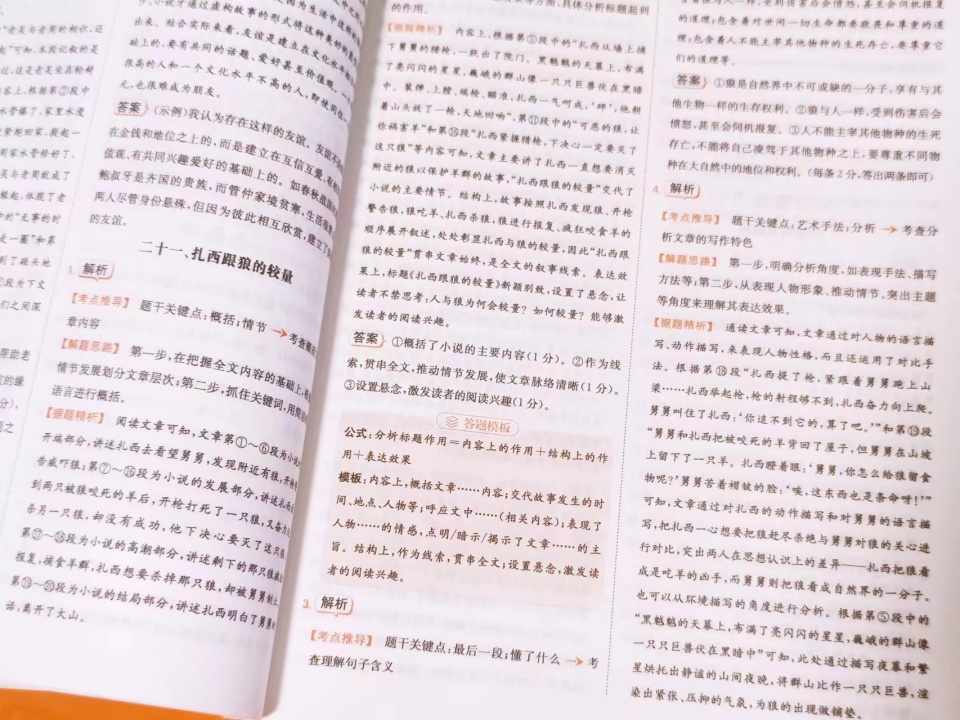 "老吴与老周的相识,还
起"可知,本段记叙的是
在金钱和地位之上的,而是建立在互信互爱、有
值观、有共同兴趣爱好的基础上的。如春秋战国
鲍叔牙是齐国的贵族,而管仲家境贫寒,生活
两人尽管身份悬殊,但因为彼此相互欣赏,建立了
的友谊。
二十一、扎西跟狼的较量
1. 解析
【考点推导】 题干关键点:概括;情节→考查
章内容
【解题思路】 第一步,在把握全文内容的基础上,
情节发展划分文章层次;第二步,抓住关键词,用简
语言进行概括。
【据题精析】 阅读文章可知,文章第①~⑥段为小说
开端部分,讲述扎西去看望舅舅,发现附近有狼,开枪
告威吓狼;第⑦~⑯段为小说的发展部分,讲述扎西
到两只被狼咬死的羊后,开枪打死了一只狼,又奋力
杀另一只狼,却没有成功,他下决心要灭了这只狼
第⑰~⑱段为小说的高潮部分,讲述剩下的那只狼
报复,捕食羊群,扎西想要杀掉那只狼,却被舅舅制止
第⑲~⑳段为小说的结局部分,讲述扎西明白了舅舅的
话,离开了大山。
的作用。
【据题精析】 内容上,根据第⑤段中的"扎西从墙上摘
下舅舅的猎枪,一跃出了院门。黑魆魆的天幕上,布满
了亮闪闪的星星,巍峨的群山像一只只巨兽伏在黑暗
中。装弹、上膛、端枪、瞄准,扎西一气呵成,'砰',他朝
着山头放了一枪,天地回响",第⑪段中的"可恶的狼,让
你祸害羊"和第⑯段"扎西紧握猎枪,下决心一定要灭了
这只狼"等内容可知,文章主要讲了扎西一直想要消灭
附近的狼以保护羊群的故事,"扎西跟狼的较量"交代了
小说的主要情节。结构上,故事按照扎西发现狼、开枪
警告狼,狼吃羊、扎西杀狼,狼进行报复、疯狂咬食羊的
顺序展开叙述,处处彰显扎西与狼的较量,因此"扎西跟
狼的较量"贯串文章始终,是全文的叙事线索。表达效
果上,标题《扎西跟狼的较量》新颖别致,设置了悬念,让
读者不禁思考:人与狼为何会较量?如何较量?能够激
发读者的阅读兴趣。
答案 ①概括了小说的主要内容(1分)。②作为线
索,贯串全文,推动情节发展,使文章脉络清晰(1分)。
③设置悬念,激发读者的阅读兴趣(1分)。
答题模板
公式:分析标题作用=内容上的作用+结构上的作
用+表达效果
模板:内容上,概括文章……内容;交代故事发生的时
间、地点、人物等;呼应文中……(相关内容);表现了
人物……的情感,点明/暗示/揭示了文章……的主
旨。结构上,作为线索,贯串全文;设置悬念,激发读
者的阅读兴趣。
3. 解析
【考点推导】 题干关键点:最后一段;懂了什么→考
查理解句子含义
理;包含着对世间一切生命都要敬畏和尊重的道
理;包含着人不能主宰其他物种的生死存亡,要尊重它
们的道理等。
答案 ①狼是自然界中不可或缺的一分子,享有与其
他生物一样的生存权利。②狼与人一样,受到伤害后会
愤怒,甚至会伺机报复。③人不能主宰其他物种的生死
存亡,不能将自己凌驾于其他物种之上,要尊重不同物
种在大自然中的地位和权利。(每条2分,答出两条即可)
4. 解析
【考点推导】 题干关键点:艺术手法;分析→考查分
析文章的写作特色
【解题思路】 第一步,明确分析角度,如表现手法、描写
方法等;第二步,从表现人物形象、推动情节、突出主题
等角度来理解其表达效果。
【据题精析】 通读文章可知,文章通过对人物的语言描
写、动作描写,来表现人物性格,而且还运用了对比手
法。根据第⑱段"扎西提了枪,紧跟着舅舅跑上山
梁……扎西举起枪,枪的射程够不到,扎西奋力向上爬。
舅舅叫住了扎西:'你追不到它的,算了吧。'"和第⑲段
"舅舅和扎西把被咬死的羊背回了屋子,但舅舅在山坡
上留下了一只羊。扎西瞪着眼:'舅舅,你怎么给狼留食
物呢?'舅舅苦着褶皱的脸:'唉,这东西也是条命呀!'"
可知,文章通过对扎西的动作描写和对舅舅的语言描
写,把扎西一心想要把狼赶尽杀绝与舅舅对狼的关心进
行对比,突出两人在思想认识上的差异——扎西把狼看
成是吃羊的凶手,而舅舅则把狼看成自然界的一分子。
也可以从环境描写的角度进行分析。根据第⑤段中的
"黑魆魆的天幕上,布满了亮闪闪的星星,巍峨的群山像
一只只巨兽伏在黑暗中"可知,此处通过描写夜幕和繁
星烘托出静谧的山间夜晚,将群山比作一只只巨兽,渲
染出紧张、压抑的气氛,为狼的出现做铺垫。